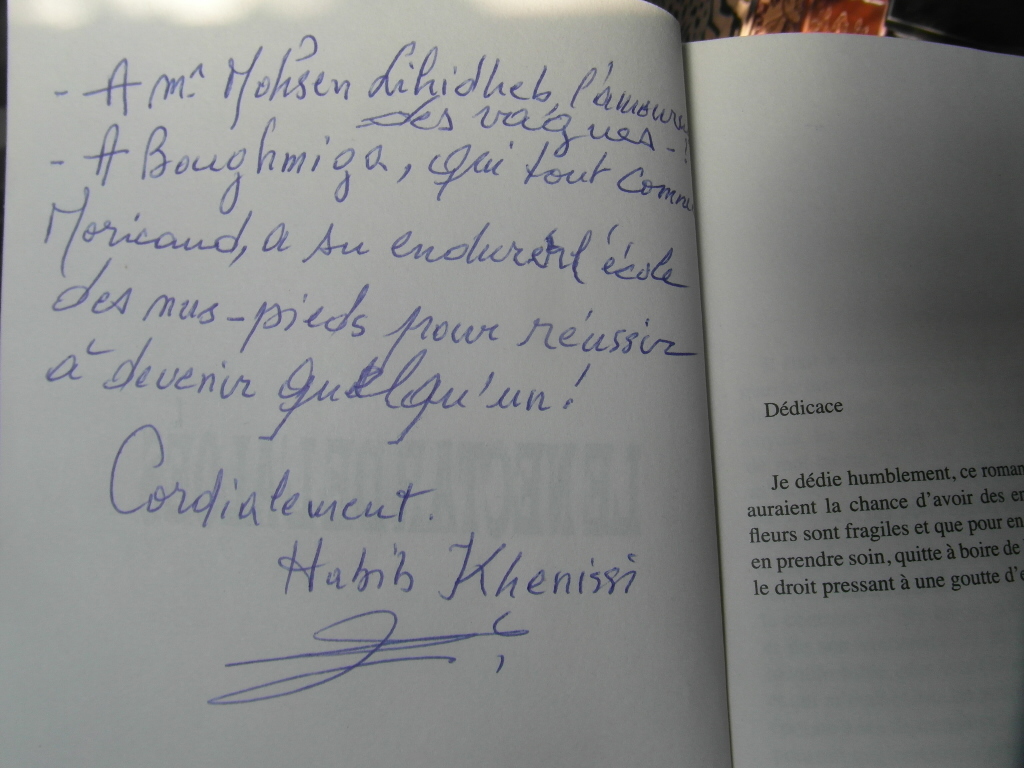 - A mr Mohsen Lihidheb, l'amoure
des vagues - !
- A Boughmiga, qui tout comme
Moricaud, a su endurer l'école
des nus-pieds pour réussir
à devenir quelqu'un !
Cordialement.
Habib Khenissi
Dédicace
Je dédie humblement, ce roman
auraient la chance d'avoir des en
fleurs sont fragiles et que pour en
en prendre soin, quitte à boire de
le droit pressant à une goutte d'e